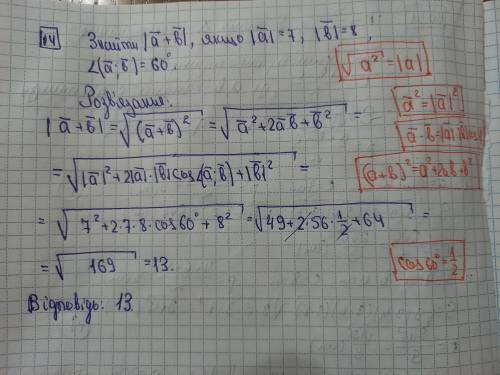 №4 Знайти |a̅+b̅|, якщо |a̅|=7, |b̅|=8,
∠(a̅;b̅)=60°.
√a̅² = |a̅|
Розв'язання.
a̅²=|a̅|²
|a̅+b̅|=√(a̅+b̅)² = √a̅²+2a̅b̅+b̅² =
a̅·b̅=|a̅|·|b̅|cos
= √|a̅|²+2|a̅|·|b̅|cos∠(a̅;b̅)+|b̅|² =
(a+b)²=a²+2ab+b²
= √7²+2·7·8·cos60°+8² = √49+2·56·½+64 =
= √169 =13.
cos60°=½
Відповідь: 13.